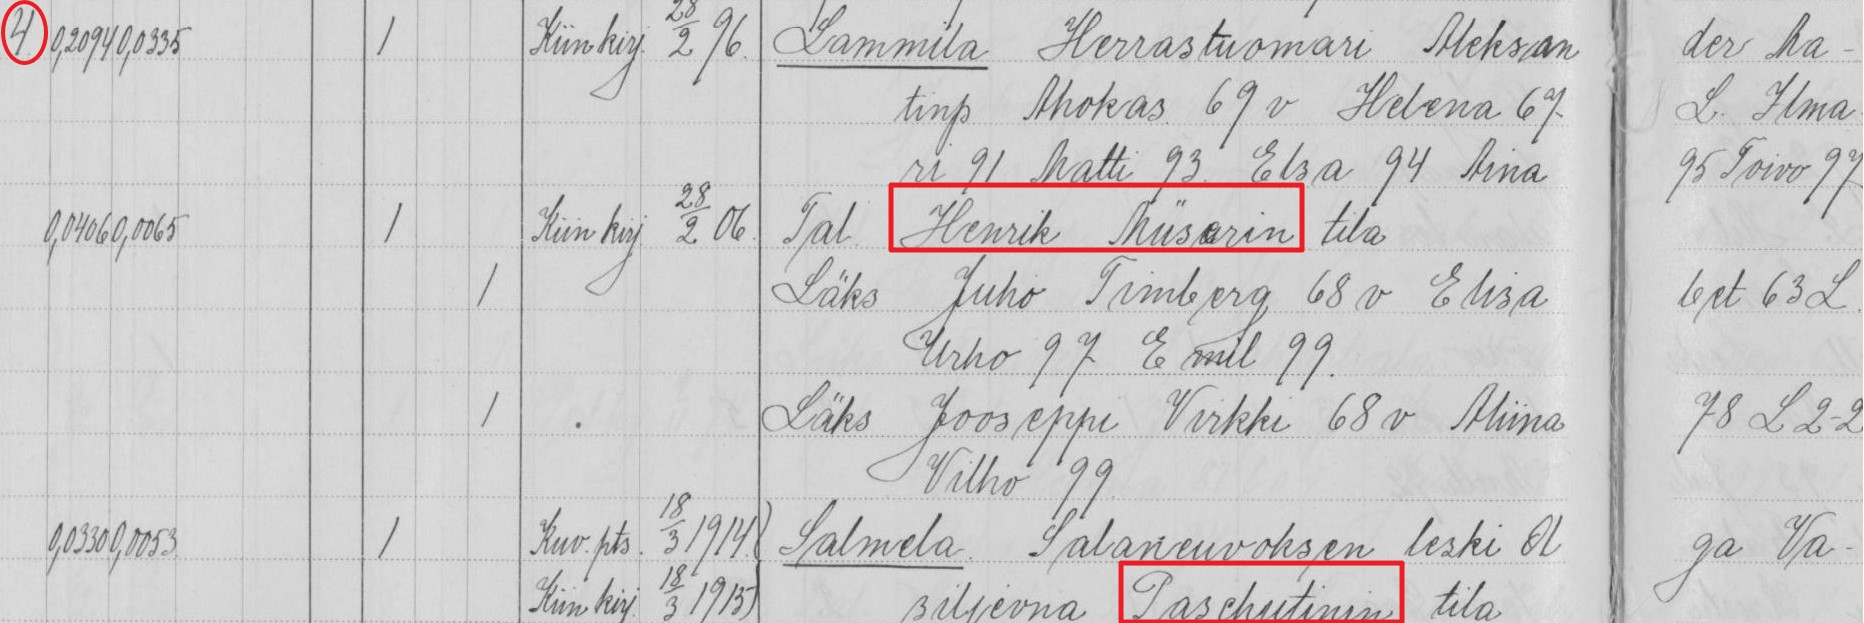 4 0,2094 0,0335 1 Kiinkirj. 28/2 96. Lammila Herrastuomari Aleksan der Ma-
tinp Ahokas 69 v Helena 67 L. Ilma-
ri 91 Matti 93. Elsa 94 Aina 95 Toivo 97
0,0406 0,0065 1 Kiinkirj 28/2 06. Tal. Henrik Müsarin tila
1 Läks Juho Timberg 68 v Elisa bet 63 L.
Urho 97 Emil 99.
1 Läks Jooseppi Virkki 68 v Aliina 78 L 2-2
Vilho 99
0,0330 0,0053 1 Kuv. pts. 18/3 1914) Salmela. Salaneuvoksen leski Ol ga Va-
Kiinkirj. 18/3 1915) siljevna Paschutinin tila